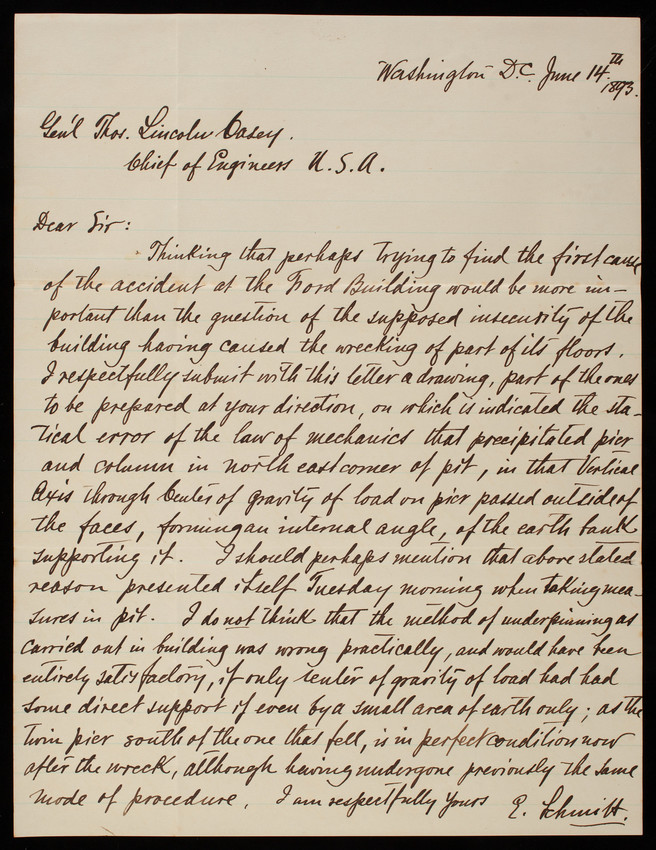 Washington D.C. June 14th 1893.
Gen'l Thos. Lincoln Casey.
Chief of Engineers U.S.A.
Dear Sir:
Thinking that perhaps trying to find the first cause
of the accident at the Ford Building would be more im-
portant than the question of the supposed insecurity of the
building having caused the wrecking of part of its floors.
I respectfully submit with this letter a drawing, part of the ones
to be prepared at your direction, on which is indicated the sta-
tical error of the law of mechanics that precipitated pier
and column in north east corner of pit, in that Vertical
Axis through Center of gravity of load on pier passed outside of
the faces, forming an internal angle, of the earth bank
supporting it. I should perhaps mention that above stated
reason presented itself Tuesday morning when taking mea-
sures in pit. I do not think that the method of underpinning as
carried out in building was wrong practically, and would have been
entirely satisfactory, if only center of gravity of load had had
some direct support if even by a small area of earth only; as the
twin pier south of the one that fell, is in perfect condition now
after the wreck, although having undergone previously the same
mode of procedure. I am respectfully yours
E. Schmitt.